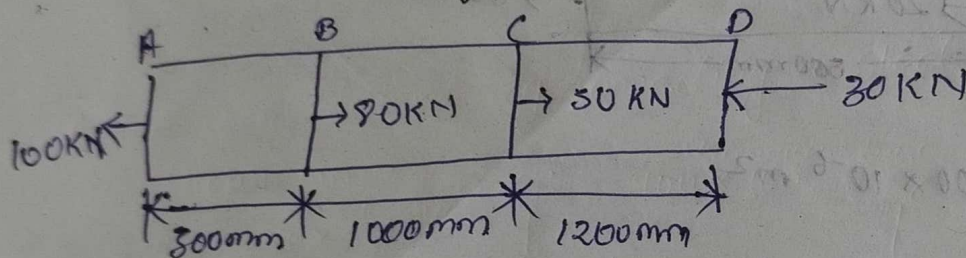 A B C D
100KN 80KN 50KN 30KN
1000mm 1200mm